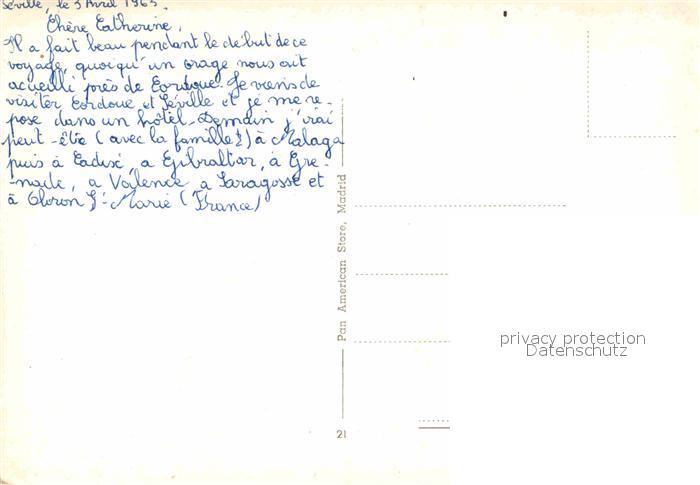 Séville, le 3 Avril 1965.
Chère Catherine,
Il a fait beau pendant le début de ce
voyage, quoiqu'un orage nous ait
acueilli près de Cordoue. Je viens de
visiter Cordoue et Séville et je me re-
pose dans un hôtel. Demain j'irai
peut-être (avec la famille!) à Malaga
puis à Cadix, a Gibraltar, à Gre-
-nade, a Valence a Saragosse et
à Oloron Ste Marie (France)
Pan American Store, Madrid
21
privacy protection
Datenschutz